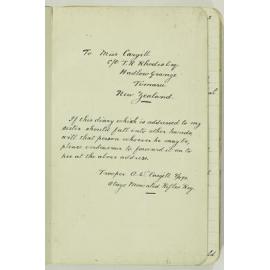 To Miss Cargill
C/o T.R. Rhodes Esq
Hadlow Grange
Timaru
New Zealand.
If this diary which is addressed to my
sister should fall into other hands
will that person whoever he may be,
please endeavour to forward it on to
her at the above address.
Trooper A.W. Cargill
Otago Mounted Rifles Reg.